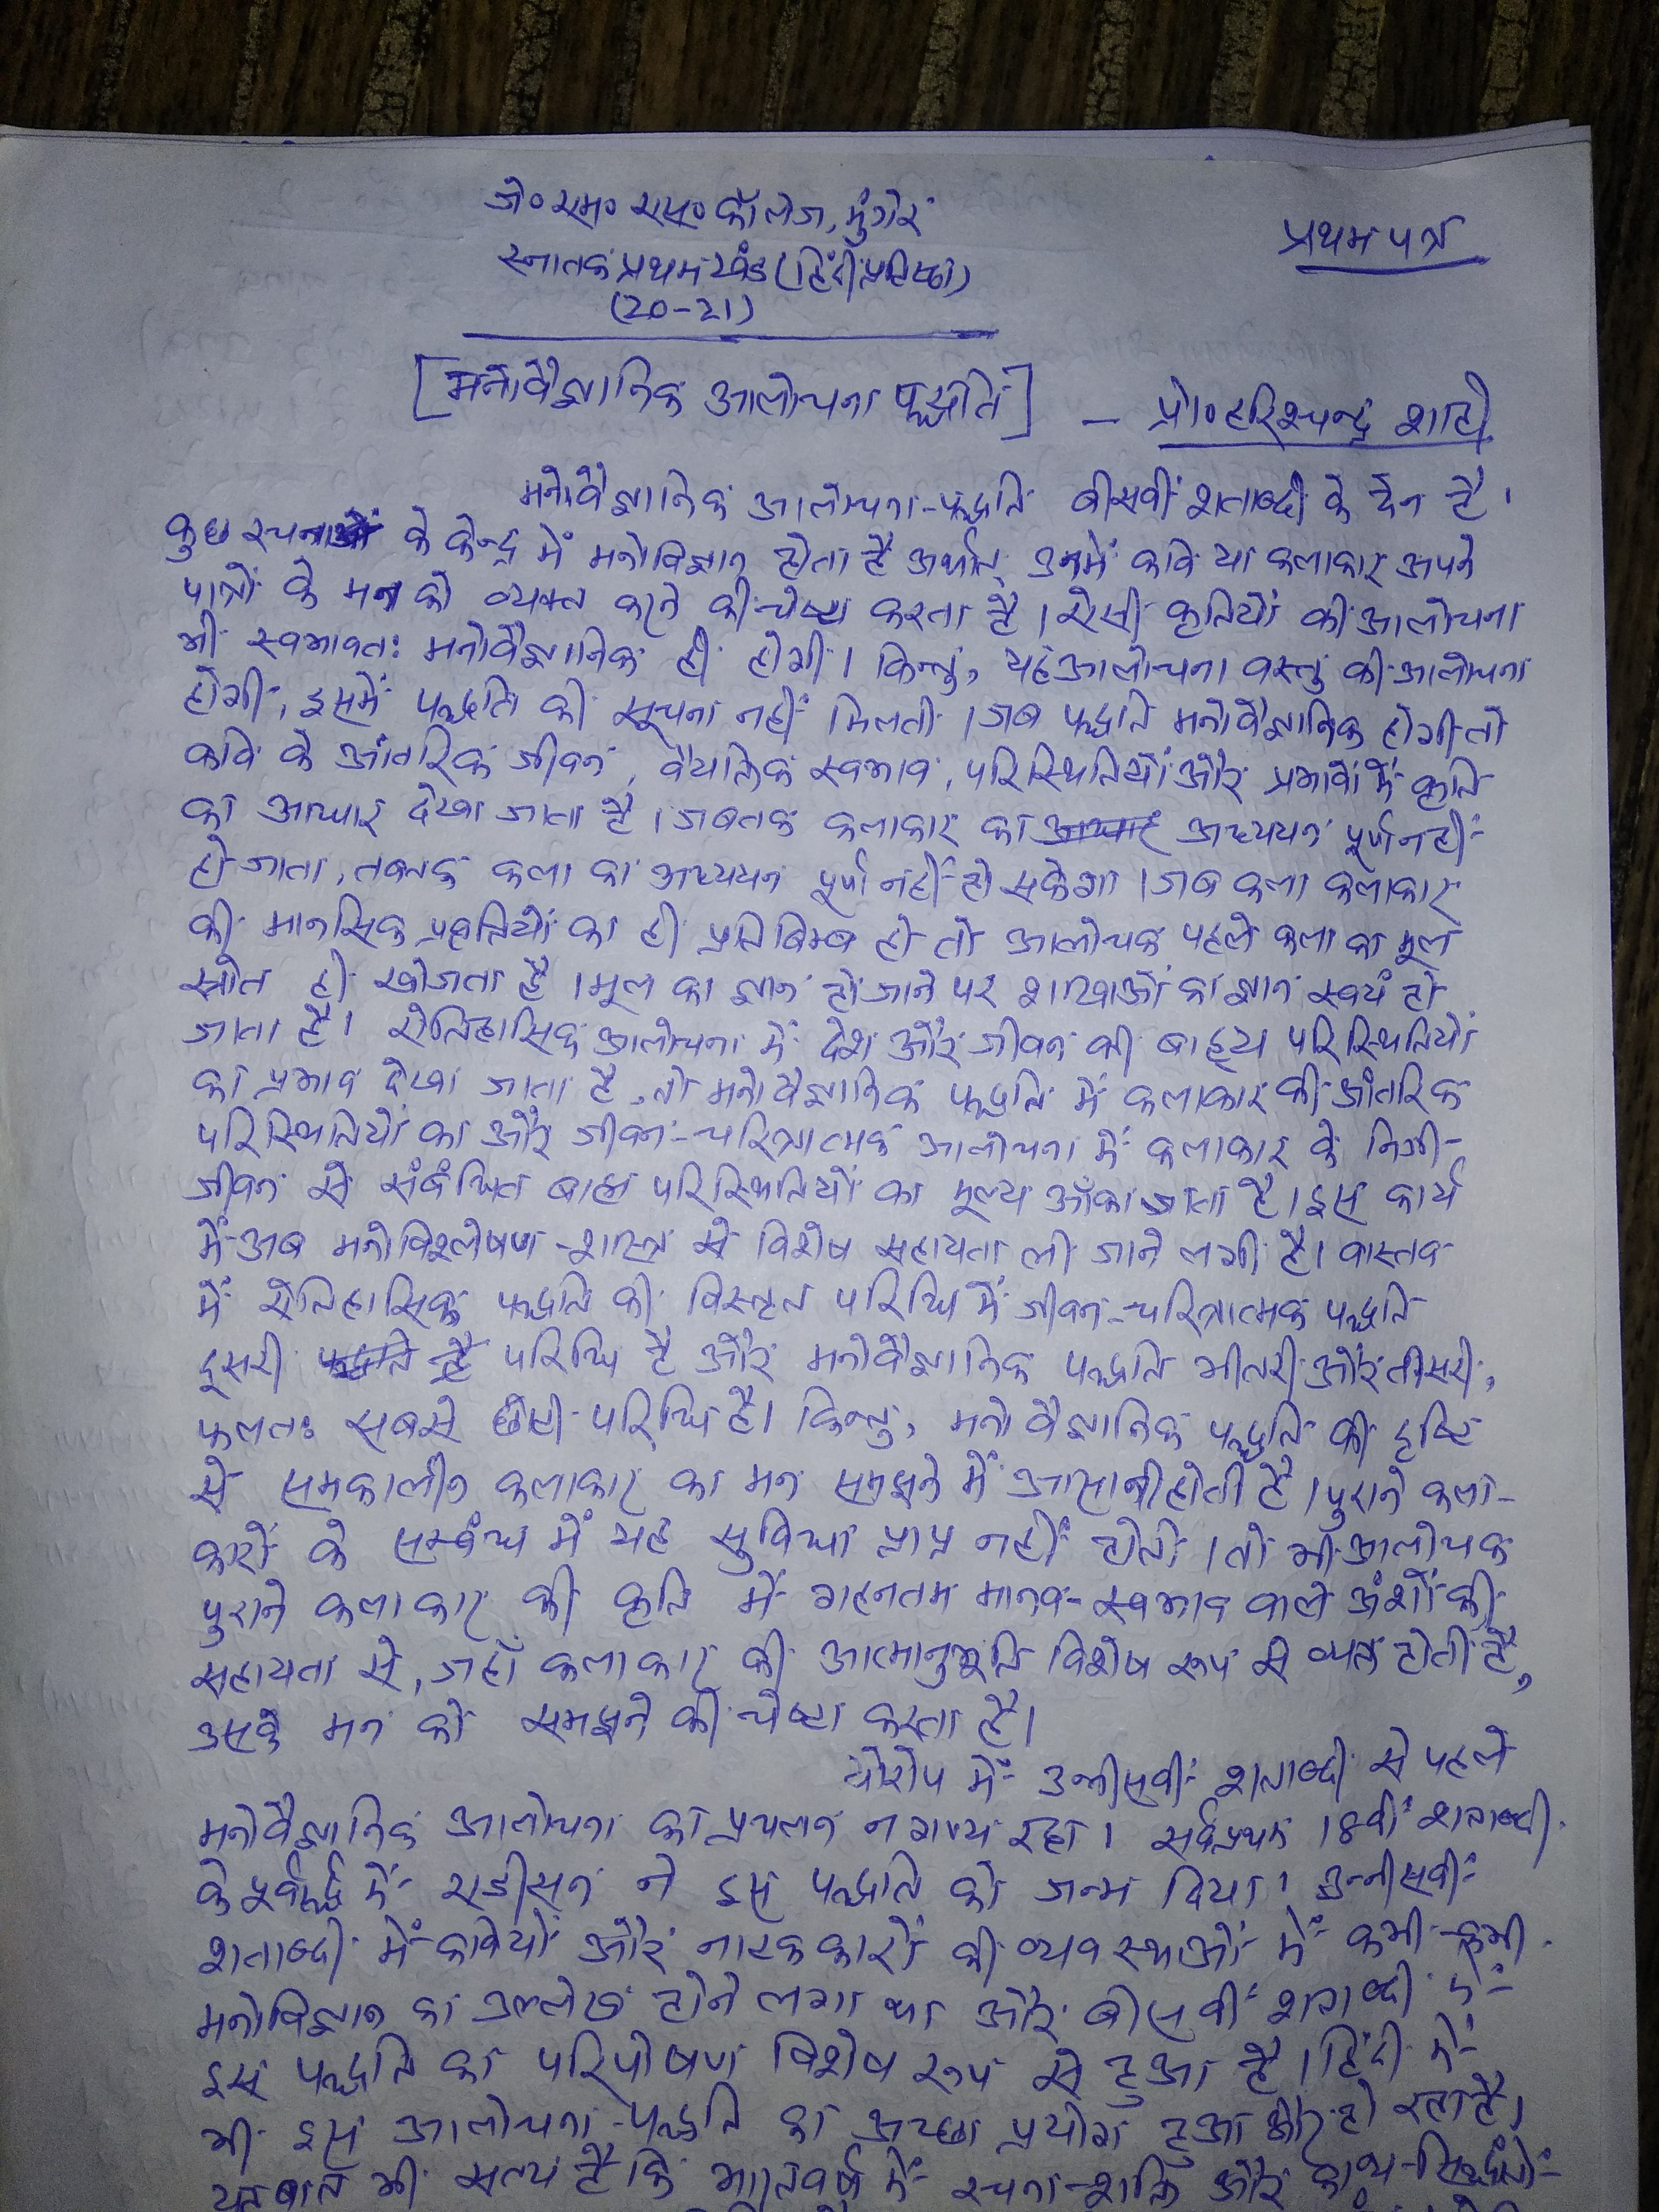 जे० एम० एस० कॉलेज, मुंगेर
प्रथम पत्र
स्नातक प्रथम खंड (हिंदी प्रतिष्ठा)
(20-21)
[मनोवैज्ञानिक आलोचना पद्धति]
- प्रो० हरिश्चन्द्र शाही
मनोवैज्ञानिक आलोचना-पद्धति बीसवीं शताब्दी के देन है।
कुछ रचनाओं के केन्द्र में मनोविज्ञान होता है अर्थात् उनमें कवि या कलाकार अपने
पात्रों के मन को व्यक्त करने की चेष्टा करता है। ऐसी कृतियों की आलोचना
भी स्वभावतः मनोवैज्ञानिक ही होगी। किन्तु, यह आलोचना वस्तु की आलोचना
होगी, इसमें पद्धति की सूचना नहीं मिलती। जब पद्धति मनोवैज्ञानिक होगी तो
कवि के आंतरिक जीवन, वैयक्तिक स्वभाव, परिस्थितियों और प्रभावों में कृति
का आधार देखा जाता है। जबतक कलाकार का अध्ययन पूर्ण नहीं
हो जाता, तबतक कला का अध्ययन पूर्ण नहीं हो सकेगा। जब कला कलाकार
की मानसिक प्रवृत्तियों का ही प्रतिबिम्ब हो तो आलोचक पहले कला का मूल
स्रोत ही खोजता है। मूल का ज्ञान हो जाने पर शाखाओं का ज्ञान स्वयं हो
जाता है। ऐतिहासिक आलोचना में देश और जीवन की बाह्य परिस्थितियों
का प्रभाव देखा जाता है, तो मनोवैज्ञानिक पद्धति में कलाकार की आंतरिक
परिस्थितियों का और जीवन-चरित्रात्मक आलोचना में कलाकार के निजी-
जीवन से संबंधित बाह्य परिस्थितियों का मूल्य आँका जाता है। इस कार्य
में अब मनोविश्लेषण-शास्त्र से विशेष सहायता ली जाने लगी है। वास्तव
में ऐतिहासिक पद्धति की विस्तृत परिधि में जीवन-चरित्रात्मक पद्धति
दूसरी परिधि है और मनोवैज्ञानिक पद्धति भीतरी और तीसरी,
फलतः सबसे छोटी परिधि है। किन्तु, मनोवैज्ञानिक पद्धति की दृष्टि
से समकालीन कलाकार का मन समझने में आसानी होती है। पुराने कला-
कारों के सम्बंध में यह सुविधा प्राप्त नहीं होती। तो भी आलोचक
पुराने कलाकार की कृति में गहनतम मानव-स्वभाव वाले अंशों की
सहायता से, जहाँ कलाकार की आत्मानुभूति विशेष रूप से व्यक्त होती है,
उसके मन को समझने की चेष्टा करता है।
योरोप में उन्नीसवीं शताब्दी से पहले
मनोवैज्ञानिक आलोचना का प्रचलन नगण्य रहा। सर्वप्रथम 18वीं शताब्दी
के पूर्वार्द्ध में एडीसन ने इस पद्धति को जन्म दिया। उन्नीसवीं
शताब्दी में कवियों और नाटककारों की व्यवस्थाओं में कभी-कभी
मनोविज्ञान का उल्लेख होने लगा था और बीसवीं शताब्दी में
इस पद्धति का परिपोषण विशेष रूप से हुआ है। हिंदी में
भी इस आलोचना-पद्धति का अच्छा प्रयोग हुआ और हो रहा है।
यह बात भी सत्य है कि भारतवर्ष में रचना-शक्ति और काव्य-सिद्धांतों